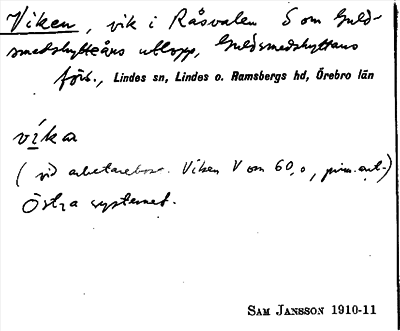 Viken, vik i Råsvalen S om Guld-
smedshytteåns utlopp, Guldsmedshyttans
förs., Lindes sn, Lindes o. Ramsbergs hd, Örebro län
vika
( vid arbetarebost. Viken V om 60,0, prim.ant.)
Östra systemet.
SAM JANSSON 1910-11